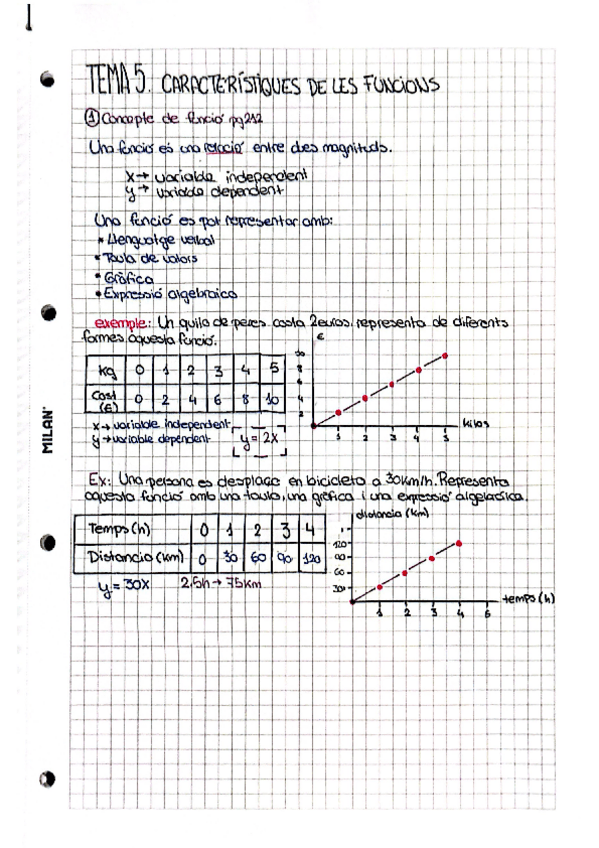 TEMA 5. CARACTERÍSTIQUES DE LES FUNCIONS
① Concepte de funció pg 212
Una funció és una relació entre dues magnituds.
x → variable independent
y → variable dependent
Una funció es pot representar amb:
• Llenguatge verbal
• Taula de valors
• Gràfica
• Expressió algebraica
exemple: Un quilo de peres costa 2euros, representa de diferents
formes aquesta funció.
Kg 0 1 2 3 4 5
Cost (€) 0 2 4 6 8 10
x → variable independent
y → variable dependent
y = 2x
€
10
8
6
4
2
1 2 3 4 5
kilos
Ex: Una persona es desplaça en bicicleta a 30km/h. Representa
aquesta funció amb una taula, una gràfica i una expressió algebraica.
Temps (h) 0 1 2 3 4
Distancia (km) 0 30 60 90 120
y = 30x 2.5h → 75km
distancia (km)
120
90
60
30
1 2 3 4
temps (h)
MILAN